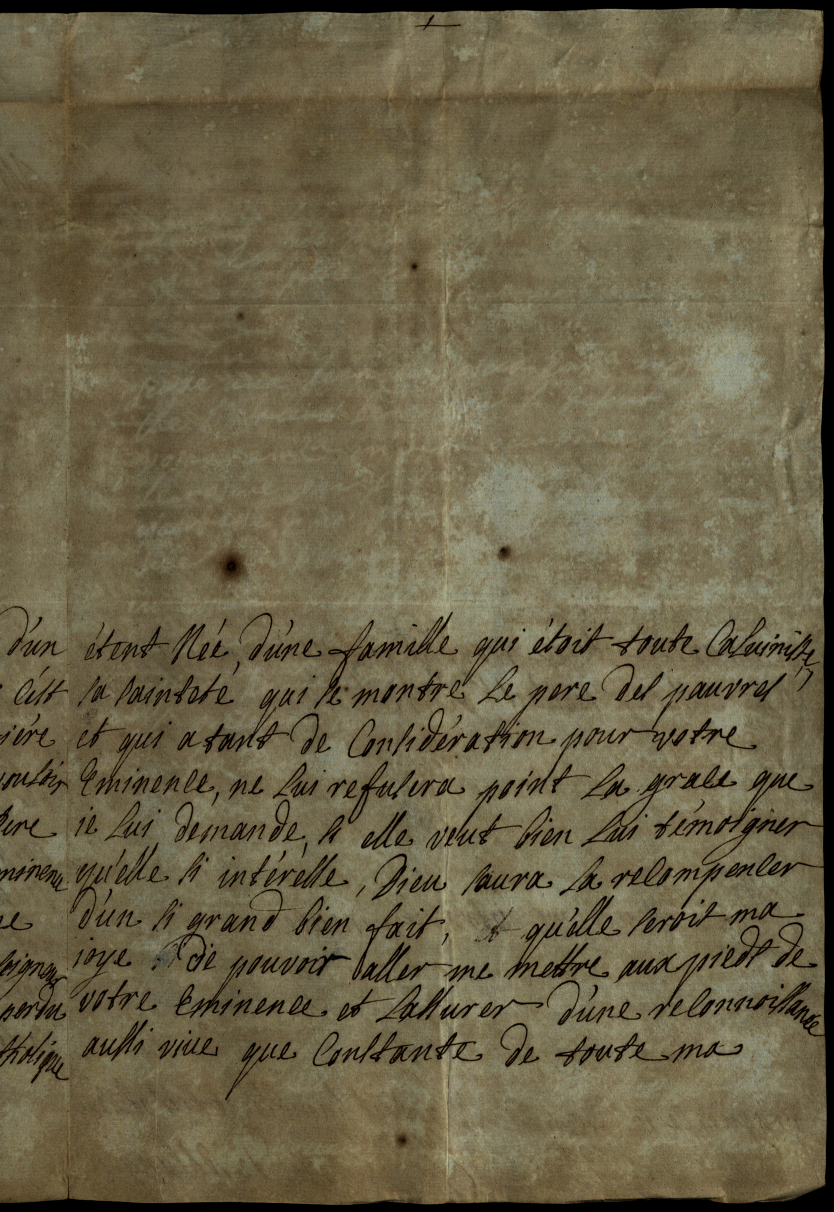 d'un
C'est
vouloir
perdu
étent Née, d'úne famille qui étoit toute Calviniste,
sa sainteté qui se montre Le pere des pauvres
et qui a tant de Considération pour votre
Eminence, ne Lui refusera point La grace que
ie Lui demande, si elle veut bien Lui témoigner
qu'elle s'i intéresse, Dieu saura La recompenser
d'un si grand bien fait, et qu'elle seroit ma
joye de pouvoir aller me mettre aux pieds de
votre Eminence et L'assurer d'úne reconnoissance
aussi vive que Constante de toute ma